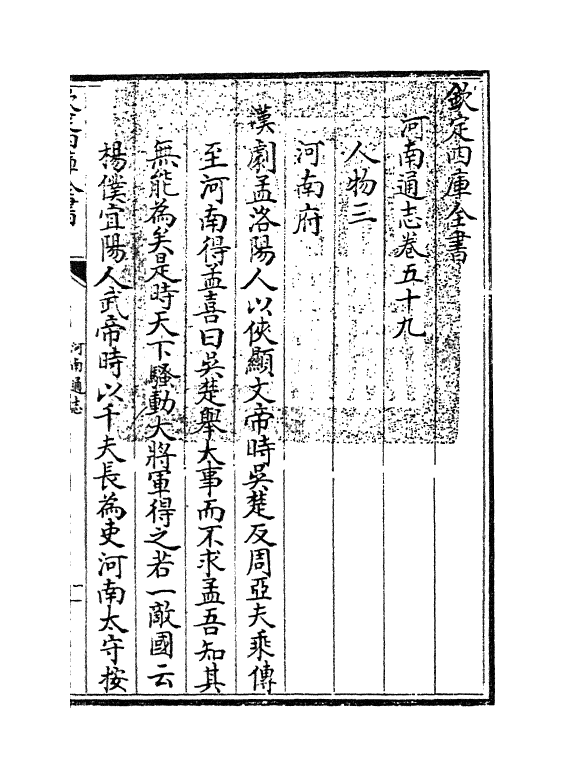 欽定四庫全書
河南通志卷五十九
人物三
河南府
漢劇孟洛陽人以俠顯文帝時吳楚反周亞夫乘傳
至河南得孟喜曰吳楚舉大事而不求孟吾知其
無能為矣是時天下騷動大將軍得之若一敵國云
楊僕宜陽人武帝時以千夫長為吏河南太守按
欽定四庫全書
河南通志